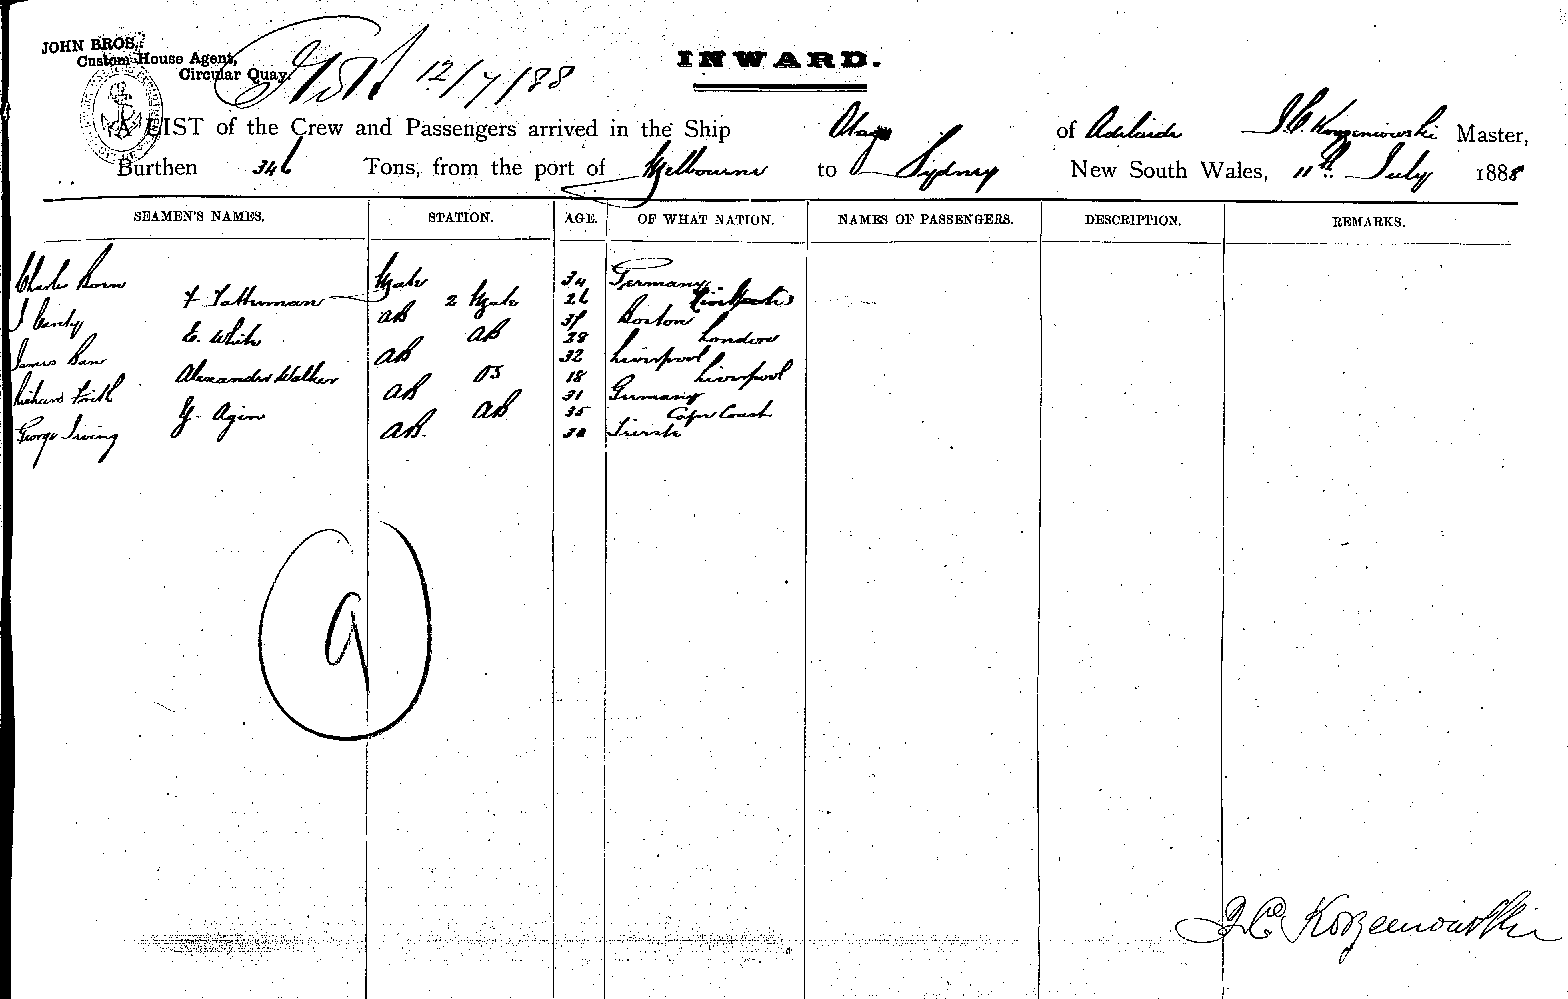 JOHN BROS.,
Custom House Agent,
Circular Quay.
12/7/88
INWARD.
A LIST of the Crew and Passengers arrived in the Ship Otago of Adelaide J C. Korzeniowski Master,
Burthen 346 Tons, from the port of Melbourne to Sydney New South Wales, 11th July 1888
SEAMEN'S NAMES. STATION. AGE. OF WHAT NATION. NAMES OF PASSENGERS. DESCRIPTION. REMARKS.
Charles Born Mate 34 Germany
2 Mate 26
AB Boston
E. White AB 28 London
James AB 32 Liverpool
Alexander Walker OS 18 Liverpool
Richard AB 31 Germany
G. AB 35 Cape Coast
George Irving AB.
9
J C Korzeniowski